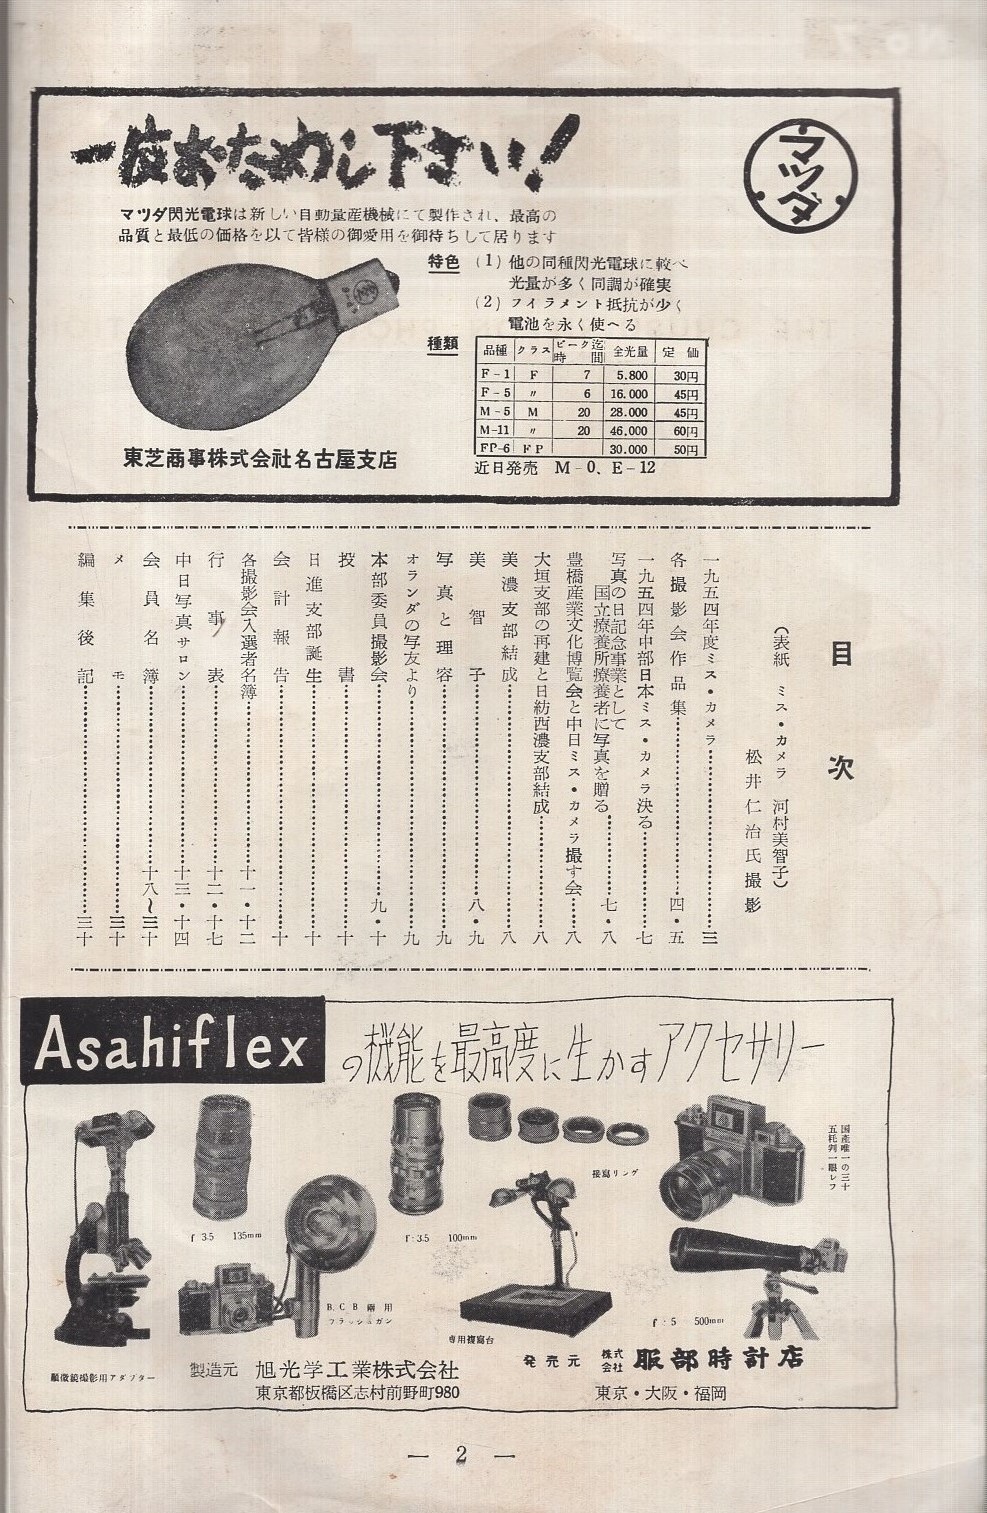 一度おためし下さい!
マツダ
マツダ閃光電球は新しい自動量産機械にて製作され、最高の
品質と最低の価格を以て皆様の御愛用を御待ちして居ります
特色
(1) 他の同種閃光電球に較べ
光量が多く同調が確実
(2) フイラメント抵抗が少く
電池を永く使へる
種類
品種 クラス ピーク迄時間 全光量 定価
F-1 F 7 5.800 30円
F-5 〃 6 16.000 45円
M-5 M 20 28.000 45円
M-11 〃 20 46.000 60円
FP-6 FP 30.000 50円
近日発売 M-0、E-12
東芝商事株式会社名古屋支店
目次
(表紙 ミス・カメラ 河村美智子)
松井仁治氏撮影
一九五四年度ミス・カメラ……三
各撮影会作品集……四・五
一九五四年中部日本ミス・カメラ決る……七
写真の日記念事業として
国立療養所療養者に写真を贈る……七・八
豊橋産業文化博覧会と中日ミス・カメラ撮す会……八
大垣支部の再建と日紡西濃支部結成……八
美濃支部結成……八
美智子……八・九
写真と理容……九
オランダの写友より……九
本部委員撮影会……九・十
投書……十
日進支部誕生……十
会計報告……十
各撮影会入選者名簿……十一・十二
行事表……十二・十七
中日写真サロン……十三・十四
会員名簿……十八〜三十
メモ……三十
編集後記……三十
Asahiflex
の機能を最高度に生かすアクセサリー
国産唯一の三十
五粍判一眼レフ
f:3.5 135mm
f:3.5 100mm
接写リング
B.C.B兩用
フラッシュガン
専用複写台
f:5 500mm
顕微鏡撮影用アダプター
製造元 旭光学工業株式会社
東京都板橋区志村前野町980
発売元 株式会社 服部時計店
東京・大阪・福岡
— 2 —